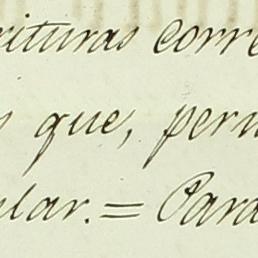 rituras corre
s que, perm
ular. = Para